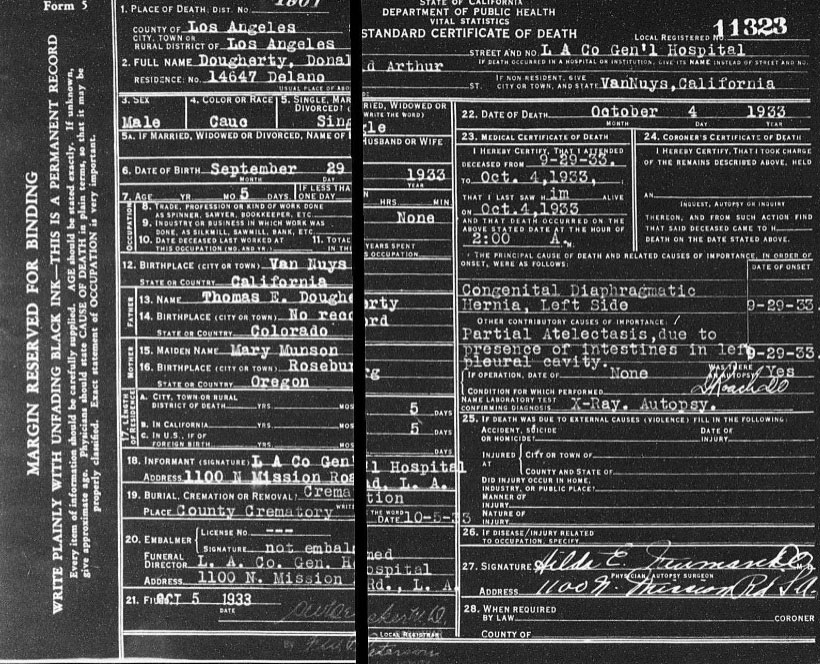 Form 5
MARGIN RESERVED FOR BINDING
WRITE PLAINLY WITH UNFADING BLACK INK—THIS IS A PERMANENT RECORD
Every item of information should be carefully supplied. AGE should be stated exactly. If unknown,
give approximate age. Physicians should state CAUSE OF DEATH in plain terms, so that it may be
properly classified. Exact statement of OCCUPATION is very important.
1. PLACE OF DEATH; DIST. NO.
COUNTY OF Los Angeles
CITY, TOWN OR
RURAL DISTRICT OF Los Angeles
2. FULL NAME Dougherty, Donal
RESIDENCE: NO. 14647 Delano
USUAL PLACE OF
3. SEX
Male
4. COLOR OR RACE
Cauc
5. SINGLE, MAR
DIVORCED?
Sing
5A. IF MARRIED, WIDOWED OR DIVORCED, NAME OF
6. DATE OF BIRTH September 29
MONTH DAY
7. AGE YR MO 5 DAYS
IF LESS THA
ONE DAY
OCCUPATION
8. TRADE, PROFESSION OR KIND OF WORK DONE
AS SPINNER, SAWYER, BOOKKEEPER, ETC.
9. INDUSTRY OR BUSINESS IN WHICH WORK WAS
DONE, AS SILKMILL, SAWMILL, BANK, ETC.
10. DATE DECEASED LAST WORKED AT
THIS OCCUPATION (MO. AND YR.)
11. TOTAL
THIS
12. BIRTHPLACE (CITY OR TOWN) Van Nuys
STATE OR COUNTRY California
FATHER
13. NAME Thomas E. Doughe
14. BIRTHPLACE (CITY OR TOWN) No reco
STATE OR COUNTRY Colorado
MOTHER
15. MAIDEN NAME Mary Munson
16. BIRTHPLACE (CITY OR TOWN) Rosebur
STATE OR COUNTRY Oregon
17 LENGTH OF RESIDENCE
A. CITY, TOWN OR RURAL
DISTRICT OF DEATH YRS. MOS
B. IN CALIFORNIA YRS. MOS
C. IN U.S., IF OF
FOREIGN BIRTH YRS. MOS
18. INFORMANT (SIGNATURE) L A Co Gen
ADDRESS 1100 N Mission Roa
19. BURIAL, CREMATION OR REMOVAL? Crema
WRITE
PLACE County Crematory
20. EMBALMER
LICENSE NO. ---
SIGNATURE not embal
FUNERAL
DIRECTOR L. A. Co. Gen. H
ADDRESS 1100 N. Mission
21. FILED OCT 5 1933
DATE
STATE OF CALIFORNIA
DEPARTMENT OF PUBLIC HEALTH
VITAL STATISTICS
STANDARD CERTIFICATE OF DEATH
LOCAL REGISTERED NO. 11323
STREET AND NO L A Co Gen'l Hospital
IF DEATH OCCURRED IN A HOSPITAL OR INSTITUTION, GIVE ITS NAME INSTEAD OF STREET AND NO.
d Arthur
ST.
IF NON RESIDENT, GIVE
CITY OR TOWN, AND STATE VanNuys,California
RIED, WIDOWED OR
(WRITE THE WORD)
gle
HUSBAND OR WIFE
1933
YEAR
HRS. MIN.
None
YEARS SPENT
OCCUPATION
rty
rd
g
5 DAYS
5 DAYS
DAYS
'l Hospital
d, L. A.
tion
THE WORD
DATE 10-5-33
med
ospital
Rd., L. A.
LOCAL REGISTRAR
22. DATE OF DEATH October 4 1933
MONTH DAY YEAR
23. MEDICAL CERTIFICATE OF DEATH
I HEREBY CERTIFY, THAT I ATTENDED
DECEASED FROM 9-29-33.
TO Oct. 4,1933,
THAT I LAST SAW H im ALIVE
ON Oct.4,1933
AND THAT DEATH OCCURRED ON THE
ABOVE STATED DATE AT THE HOUR OF
2:00 A. M.
24. CORONER'S CERTIFICATE OF DEATH
I HEREBY CERTIFY, THAT I TOOK CHARGE
OF THE REMAINS DESCRIBED ABOVE, HELD
AN
INQUEST, AUTOPSY OR INQUIRY
THEREON, AND FROM SUCH ACTION FIND
THAT SAID DECEASED CAME TO H
DEATH ON THE DATE STATED ABOVE.
THE PRINCIPAL CAUSE OF DEATH AND RELATED CAUSES OF IMPORTANCE, IN ORDER OF
ONSET, WERE AS FOLLOWS:
DATE OF ONSET
Congenital Diaphragmatic
Hernia, Left Side 9-29-33.
OTHER CONTRIBUTORY CAUSES OF IMPORTANCE:
Partial Atelectasis,due to
presence of intestines in left 9-29-33.
pleural cavity.
IF OPERATION, DATE OF None
WAS THERE
AN AUTOPSY? Yes
CONDITION FOR WHICH PERFORMED
NAME LABORATORY TEST
CONFIRMING DIAGNOSIS X-Ray. Autopsy.
25. IF DEATH WAS DUE TO EXTERNAL CAUSES (VIOLENCE) FILL IN THE FOLLOWING:
ACCIDENT, SUICIDE
OR HOMICIDE?
DATE OF
INJURY
INJURED
AT
CITY OR TOWN OF
COUNTY AND STATE OF
DID INJURY OCCUR IN HOME,
INDUSTRY, OR PUBLIC PLACE?
MANNER OF
INJURY
NATURE OF
INJURY
26. IF DISEASE/INJURY RELATED
TO OCCUPATION, SPECIFY
27. SIGNATURE Hilda E.
PHYSICIAN, AUTOPSY SURGEON
ADDRESS 1100 N. Mission Rd L.A.
28. WHEN REQUIRED
BY LAW CORONER
COUNTY OF